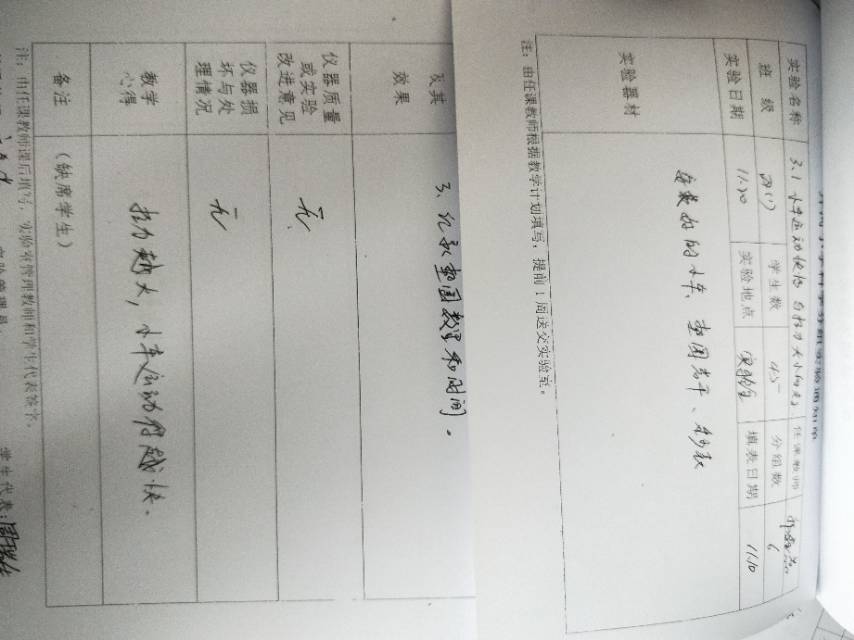 实验名称 3.1 小车运动快慢与拉力大小的关系 任课教师
班 级 学生数 45 分组数 6
实验日期 11.20 实验地点 实验室 填表日期 11.10
实验器材 安装好的小车、垫圈若干、秒表
注：由任课教师根据教学计划填写，提前1周送交实验室。
及其
效果
3、记录垫圈数量和时间。
仪器质量
或实验
改进意见
无
仪器损
坏与处
理情况
无
教学
心得
拉力越大，小车运动得越快。
备注 （缺席学生）
注：由任课教师课后填写，实验室管理教师和学生代表签字。
学生代表：